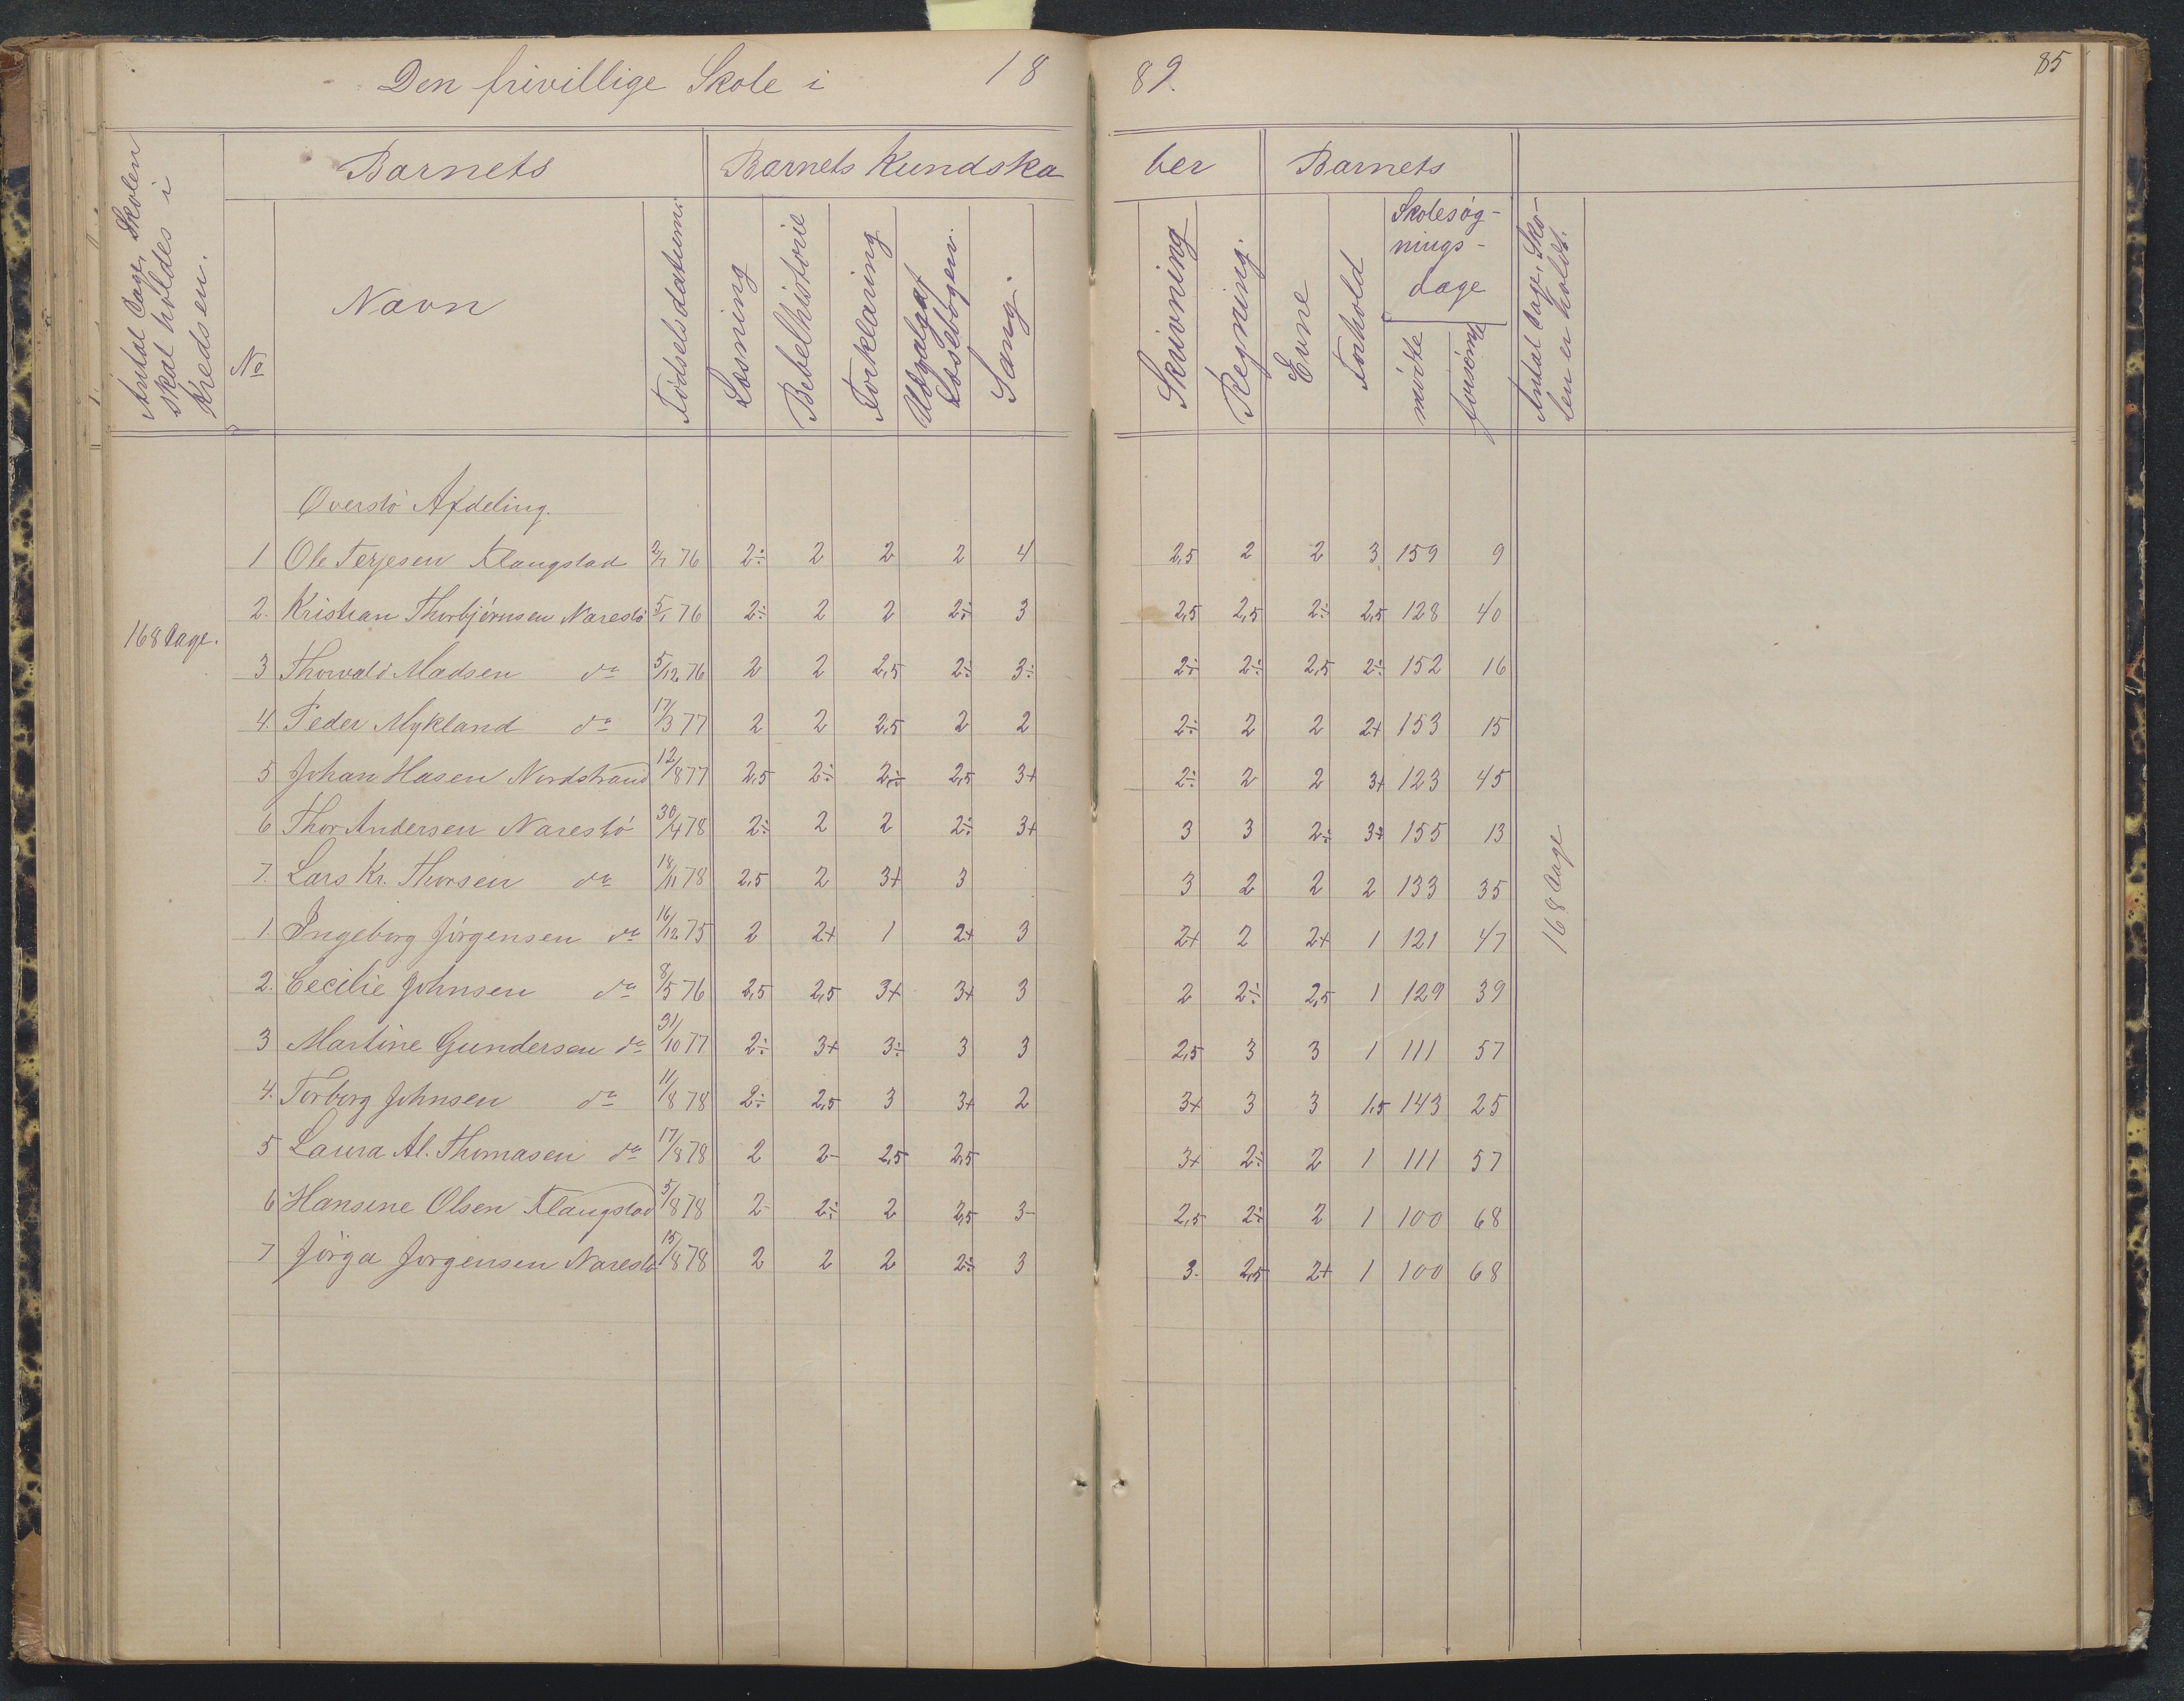 Den frivillige Skole i 18 89. 85
Antal Dage, Skolen skal holdes i Kredsen.
Barnets Barnets Kundska ber Barnets
No Navn Fødselsdatum: Læsning Bibelhistorie Forklaring Udvalg af Læsebogen. Sang. Skrivning Regning. Evne Forhold Skolesøg-
nings-
dage
mødte forsømte Antal Dage, Sko-
len er holdt.
Overstö Afdeling.
1 Ole Terjesen Klangstad 2/7 76 2÷ 2 2 2 4 2,5 2 2 3 159 9
2. Kristian Thorbjörnsen Narestö 5/1 76 2÷ 2 2 2÷ 3 2,5 2,5 2÷ 2,5 128 40
168 Dage.
3 Thorvald Madsen do 5/12 76 2 2 2,5 2÷ 3÷ 2÷ 2÷ 2,5 2÷ 152 16
4. Peder Mykland do 17/3 77 2 2 2,5 2 2 2÷ 2 2 2+ 153 15
5 Johan Hasen Nordstrand 12/8 77 2,5 2÷ 2÷ 2,5 3+ 2÷ 2 2 3+ 123 45
6 Thor Andersen Narestö 30/4 78 2÷ 2 2 2÷ 3+ 3 3 2÷ 3+ 155 13
7. Lars Kr. Thorsen do 18/11 78 2,5 2 3+ 3 3 2 2 2 133 35
168 Dage
1. Ingeborg Jörgensen do 16/12 75 2 2+ 1 2+ 3 2+ 2 2+ 1 121 47
2. Cecilie Johnsen do 8/5 76 2,5 2,5 3+ 3+ 3 2 2÷ 2,5 1 129 39
3 Martine Gundersen do 31/10 77 2÷ 3+ 3÷ 3 3 2,5 3 3 1 111 57
4. Torborg Johnsen do 11/8 78 2÷ 2,5 3 3+ 2 3+ 3 3 1,5 143 25
5 Laura Al. Thomasen do 17/8 78 2 2- 2,5 2,5 3+ 2÷ 2 1 111 57
6 Hansine Olsen Klangstad 5/8 78 2- 2÷ 2 2,5 3- 2,5 2÷ 2 1 100 68
7 Jörga Jorgensen Narestö 15/8 78 2 2 2 2÷ 3 3. 2,5 2+ 1 100 68